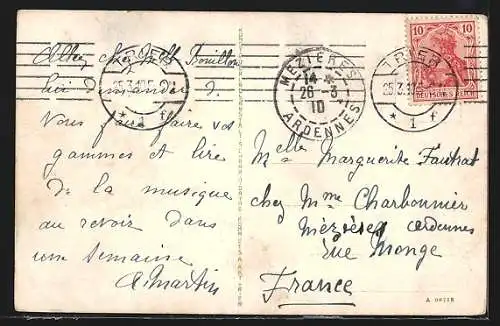 Allez chez Melle Bouillon
lui demander ?
Vous faire faire vos
gammes et lire
de la musique
au revoir dans
une semaine
A. Martin
TRIER
25.3.10
* 1 f
MEZIERES
14 *
26 - 3
10
ARDENNES
TRIER
25.3.10
* 1 f
10 10
DEUTSCHES REICH
Melle Marguerite Fautrat
chez Mme Charbonnier
Mézières Ardennes
Rue Monge
France